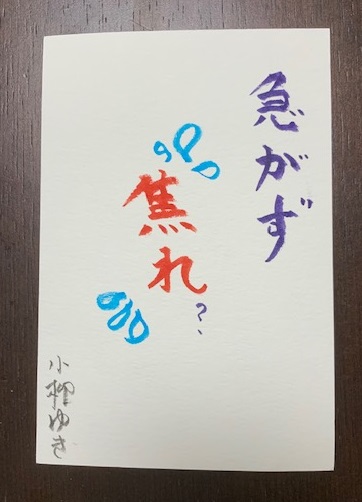 急がず
焦れ?
小柳ゆき